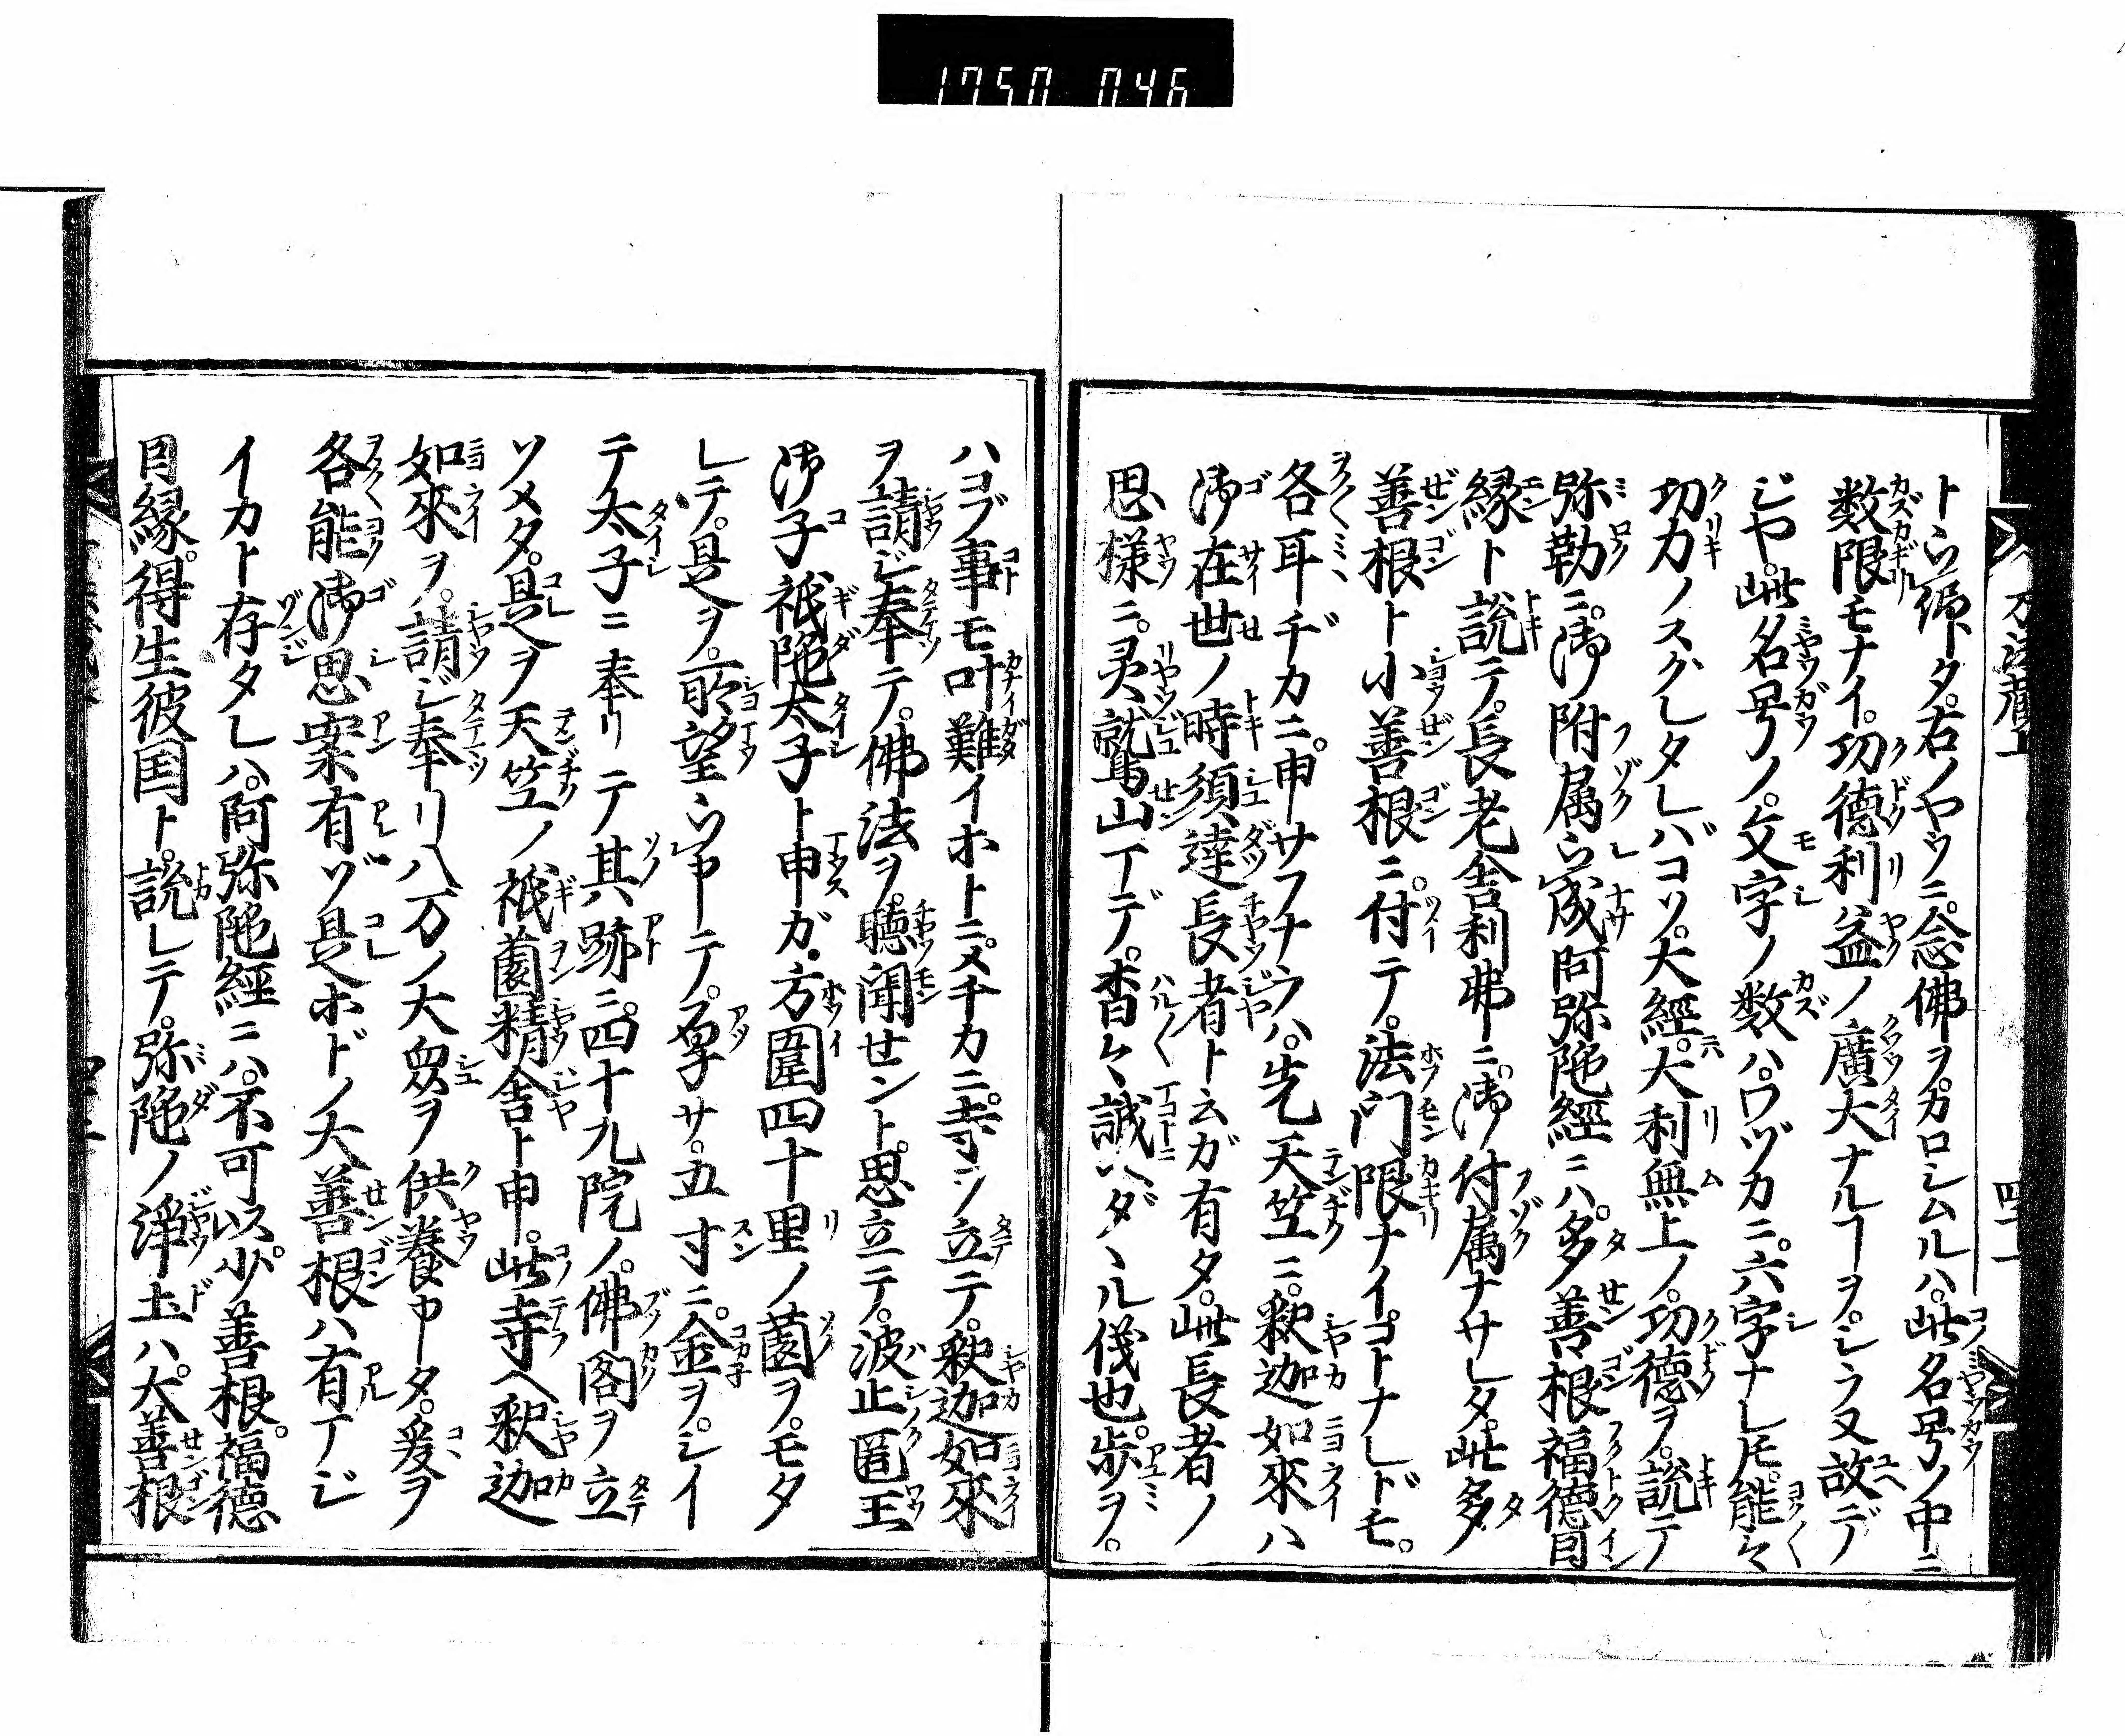 1750 046
トㇱ㆑タ。右ノヤウニ。念佛ヲカロシムルハ。此名号ノ中ニ
数限モナイ。功徳利益ノ廣大ナルヿヲ。シラヌ故デ
ジヤ。此名号ノ。文字ノ数ハ。ワヅカニ。六字ナレ𪜈。能々
功力ノスグレタレバコソ。大經。大利無上ノ。功徳ヲ。説テ
弥勒ニ。御附属被成阿弥陀經ニハ。多善根福徳因
縁ト説テ。長老舎利弗ニ。御付属ナサレタ。此多
善根ト小善根ニ付テ。法门限ナイコトナレドモ。
各耳ヂカニ。申サフナラハ。先天竺ニ。釈迦如來ハ
御在世ノ時須達長者ト云ガ有タ。此長者ノ
思様ニ。灵鷲山マデ。杳々誠ハダヽル儀也。歩ヲ。
ハコブ事モ叶難イホトニ。メチカニ。寺ヲ立テ。釈迦如來
ヲ請ジ奉テ。佛法ヲ。聴聞せント。思立テ。波止匿王
御子祇陀太子ト申ガ。方圍四十里ノ薗ヲ。モタ
レテ。是ヲ。所望被申テ。厚サ。五寸ニ。金ヲ。シイ
テ太子ニ奉リテ其跡ニ。四十九院ノ。佛閣ヲ立
ソメタ。是ヲ天竺ノ祇薗精舎ト申。此寺ヘ釈迦
如來ヲ。請ジ奉リ八万ノ大衆ヲ供養申タ。爰ヲ
各能御思案有ヅ是ホドノ大善根ハ有マジ
イカト存タレハ。阿弥陀經ニハ。不可以少。善根。福徳
因縁。得生彼国ト。説レテ。弥陀ノ浄土ハ。大善根